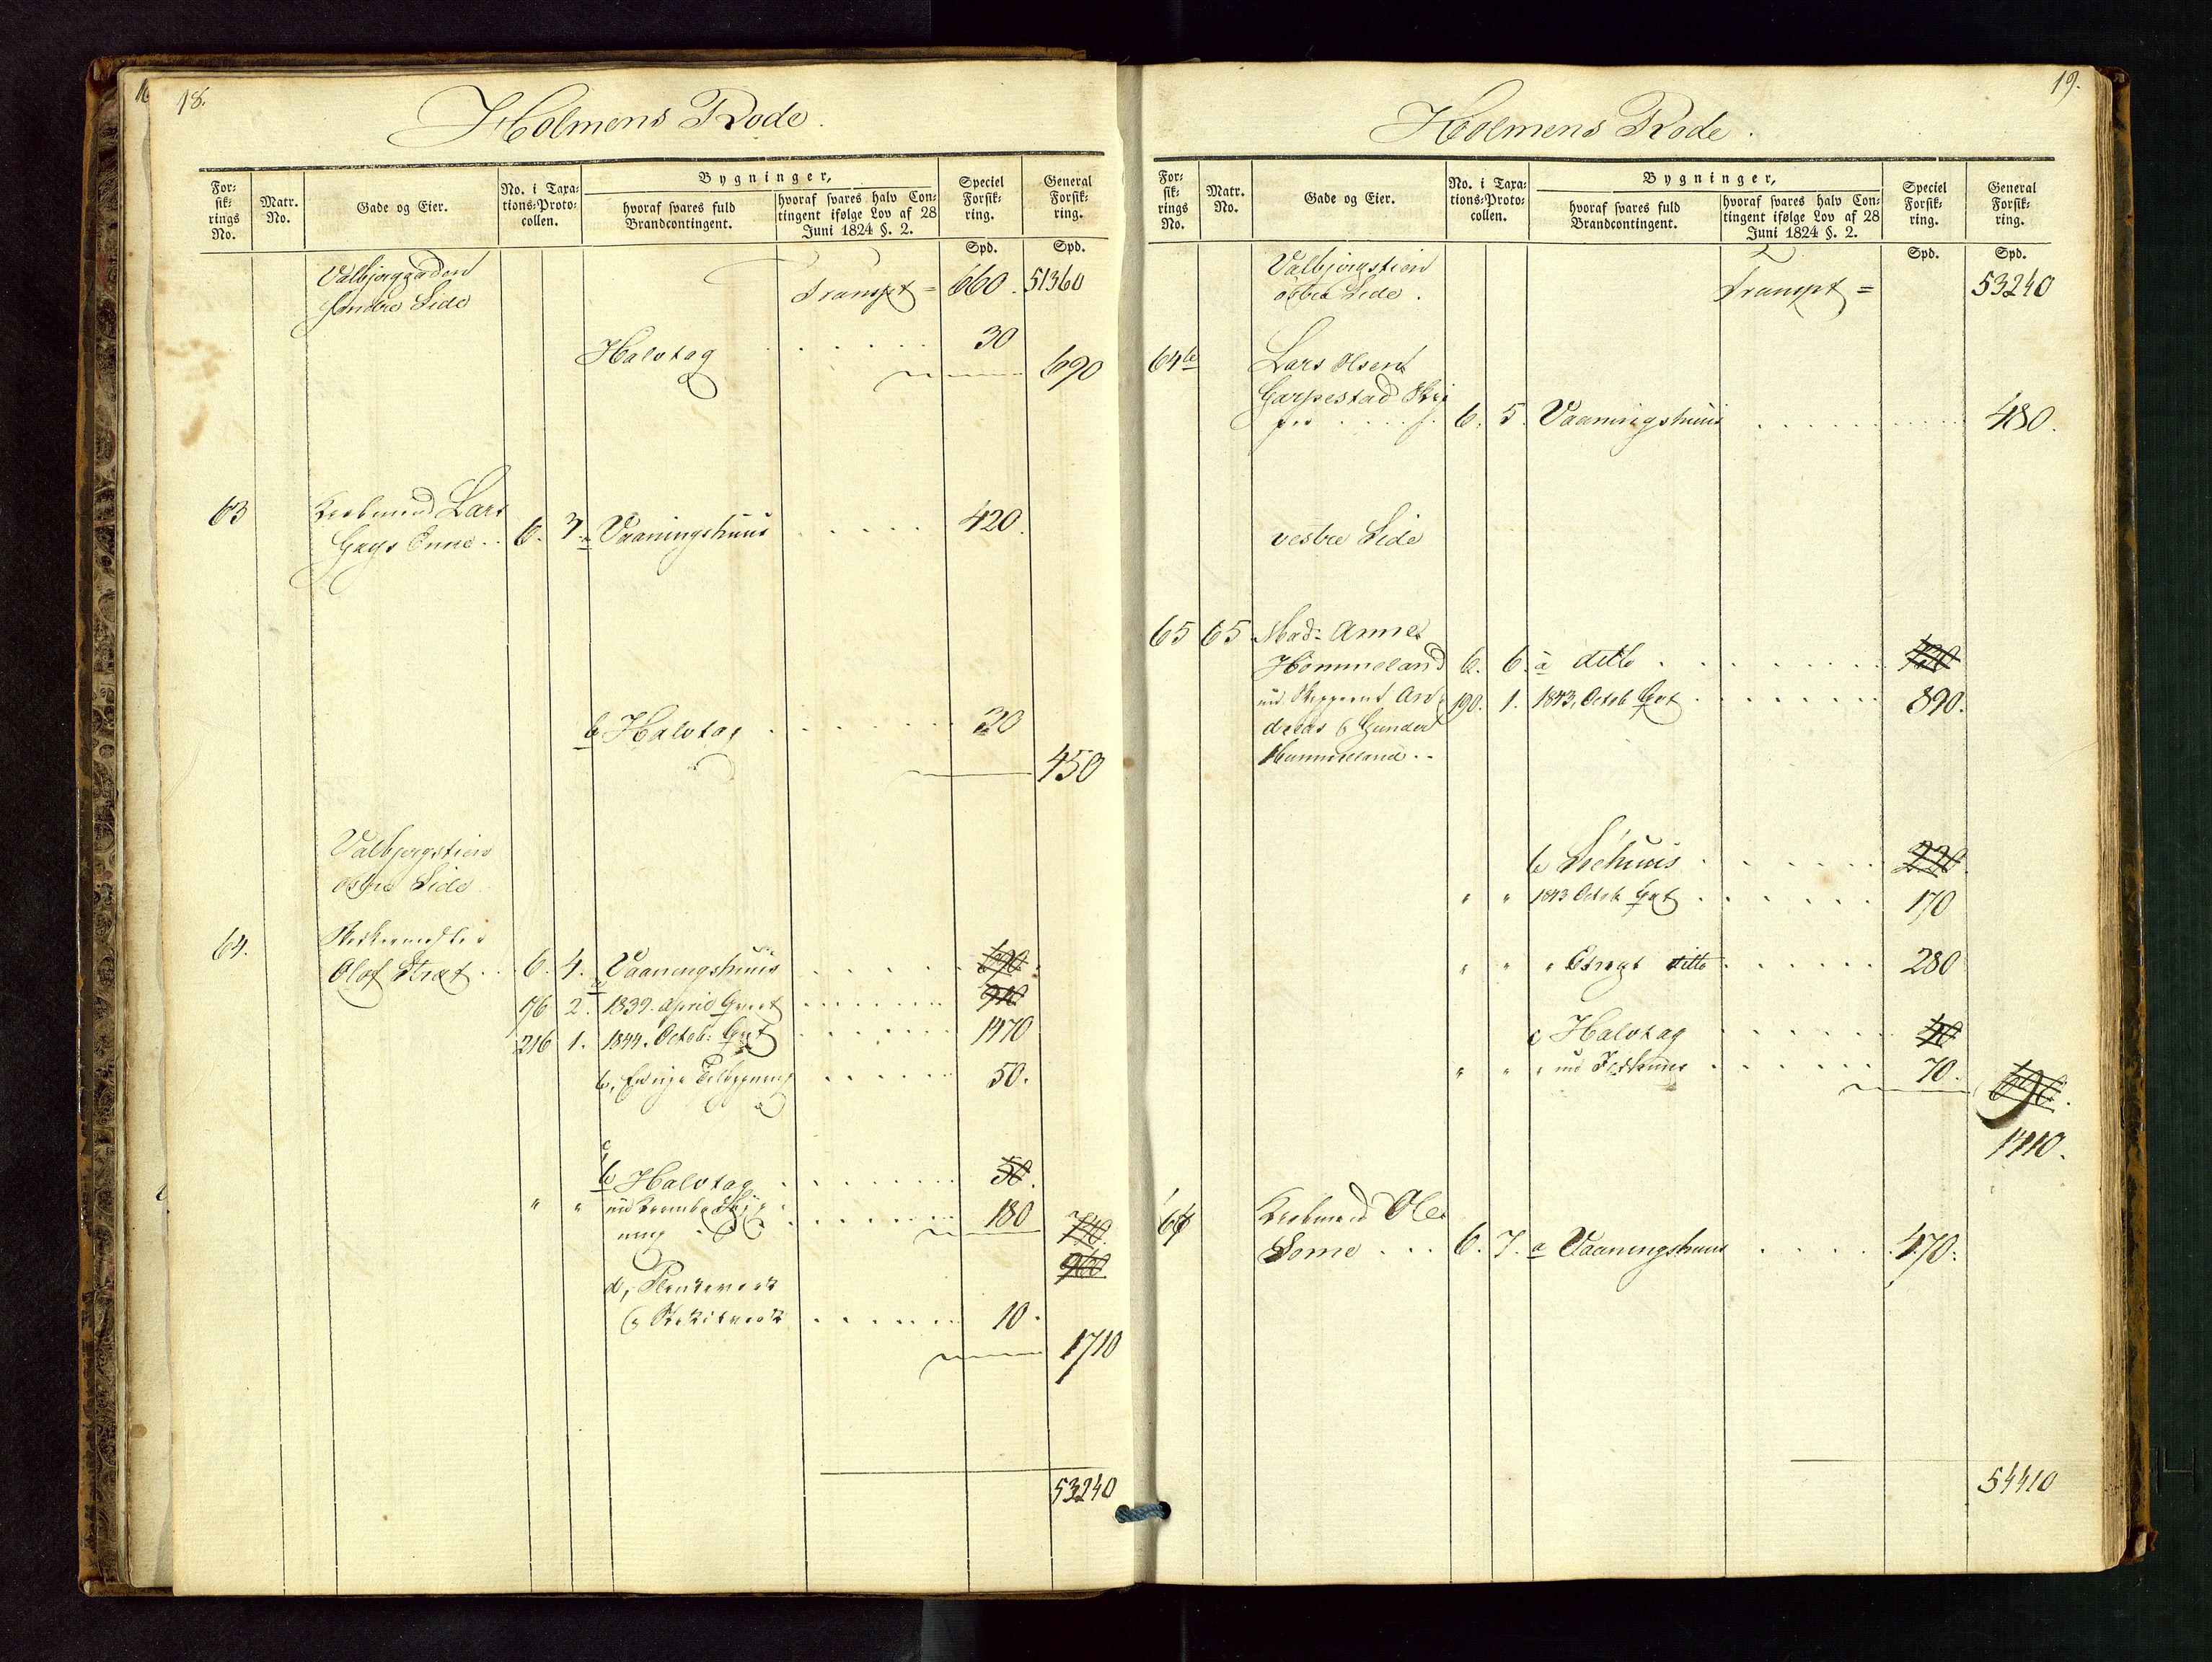 18.
Holmens Rode.
For-
sik-
rings
No.
Matr.
No.
Gade og Eier.
No. i Taxa-
tions-Proto-
collen.
Bygninger,
hvoraf svares fuld
Brandcontingent.
hvoraf svares halv Con-
tingent ifølge Lov af 28
Juni 1824 §. 2.
Speciel
Forsik-
ring.
General
Forsik-
ring.
Spd. Spd.
Valbjerggaden
søndre Side
Transpt = 660. 51360
Halvtag . . . . . . 30
690
63 Lars
Gays Enne . . 6. 3. a Vaaningshuus . . . . 420.
b Halvtag . . . . . . 30
450
Valbjergstien
østre Side
64.
Olof . . 6. 4. a Vaaningshuus . . . . . 690.
76 2. 1839. April . . . . . . 910
216 1. 1844. Octob: . . . . . . 1470
b, . . . . . . 50.
c
b Halvtag . . . . . . . 50.
" " . . . . . . 180 740.
960
d,
& Stakitværk . . . . . . 10.
1710
53240
19.
Holmens Rode.
For-
sik-
rings
No.
Matr.
No.
Gade og Eier.
No. i Taxa-
tions-Proto-
collen.
Bygninger,
hvoraf svares fuld
Brandcontingent.
hvoraf svares halv Con-
tingent ifølge Lov af 28
Juni 1824 §. 2.
Speciel
Forsik-
ring.
General
Forsik-
ring.
Spd. Spd.
Valbjergstien
østre Side.
Transpt = 53240
64b Lars Olsen
Garpestad
6. 5. Vaaningshuus . . . . . . 480.
vestre Side
65 65 Mad: Anne
Hommeland 6. 6. a ditto . . . . . . . 430
190. 1. 1843, Octob . . . . . . 890.
& Gunder
Hummeland . .
b Søehuus . . . . . . 220.
" " 1843 Octob . . . . . . 170
" " " ditto . . . . . . 280
c Halvtag . . . . . . 40
" " " . . . . . . 70. 690.
1410.
Ole
Some . . . 6. 7. a Vaaningshuus . . . . . 470.
54410